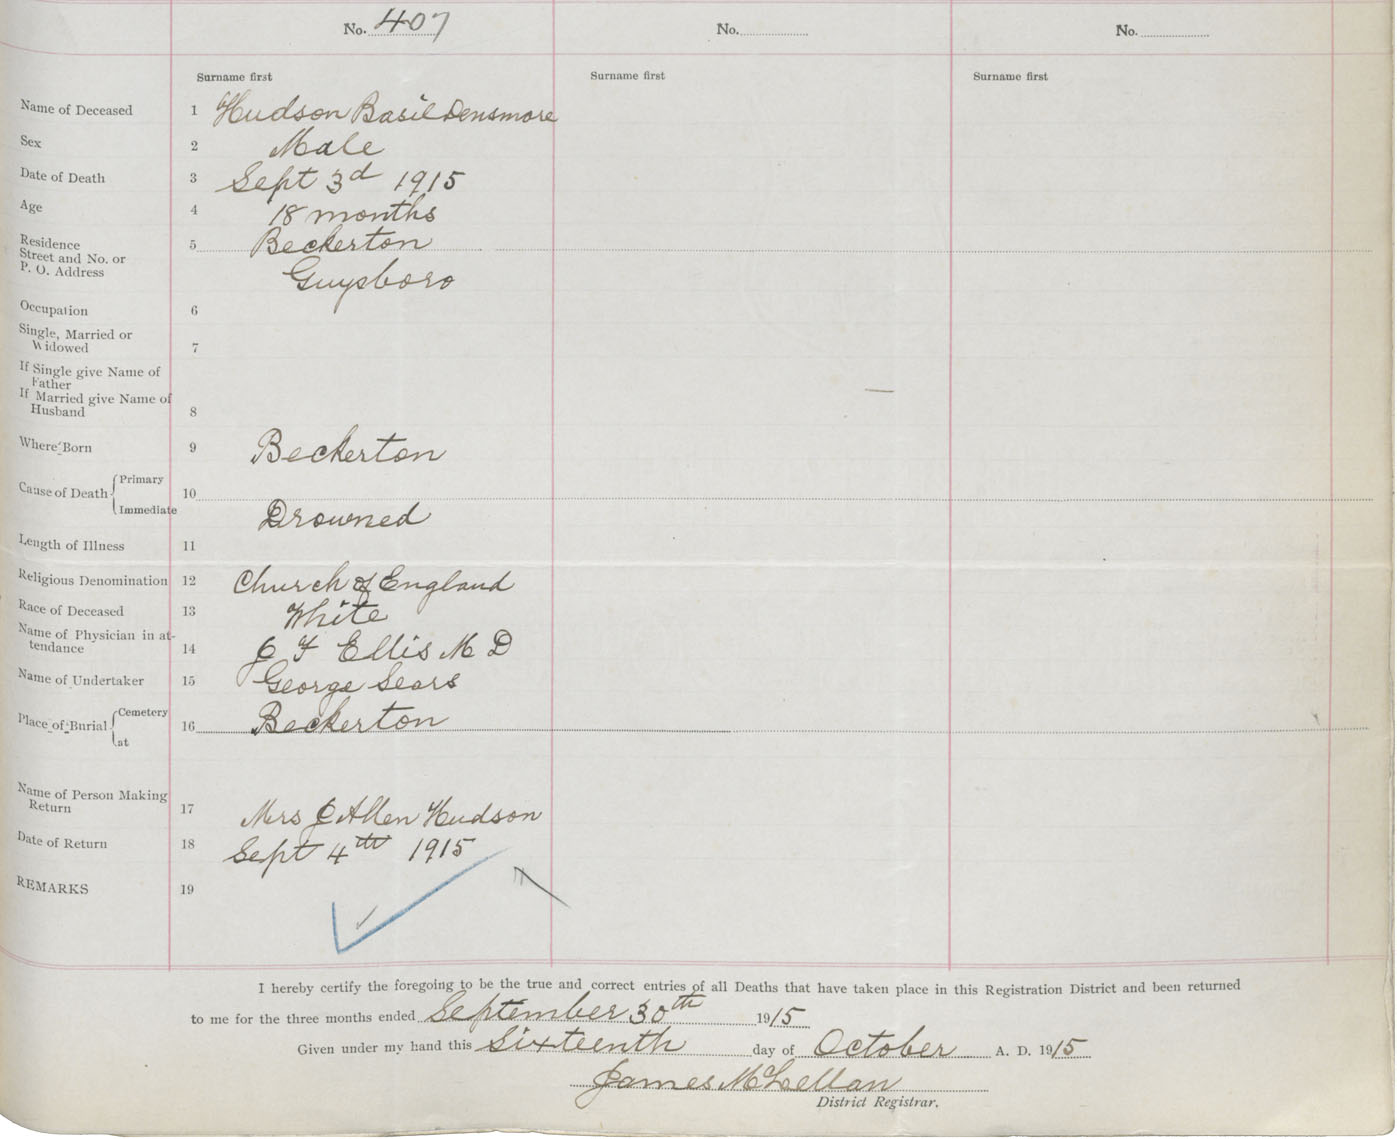 No. 407 No. No.
Surname first Surname first Surname first
Name of Deceased 1 Hudson Basil Densmore
Sex 2 Male
Date of Death 3 Sept 3d 1915
Age 4 18 months
Residence 5 Beckerton
Street and No. or
P. O. Address Guysboro
Occupation 6
Single, Married or
Widowed 7
If Single give Name of
Father
If Married give Name of
Husband 8
Where Born 9 Beckerton
Cause of Death Primary 10
Immediate Drowned
Length of Illness 11
Religious Denomination 12 Church of England
Race of Deceased 13 White
Name of Physician in at-
tendance 14 J F Ellis M D
Name of Undertaker 15 George Sears
Place of Burial Cemetery 16 Beckerton
at
Name of Person Making
Return 17 Mrs J Allen Hudson
Date of Return 18 Sept 4th 1915
REMARKS 19
I hereby certify the foregoing to be the true and correct entries of all Deaths that have taken place in this Registration District and been returned
to me for the three months ended September 30th 1915
Given under my hand this Sixteenth day of October A. D. 1915
James McLellan
District Registrar.